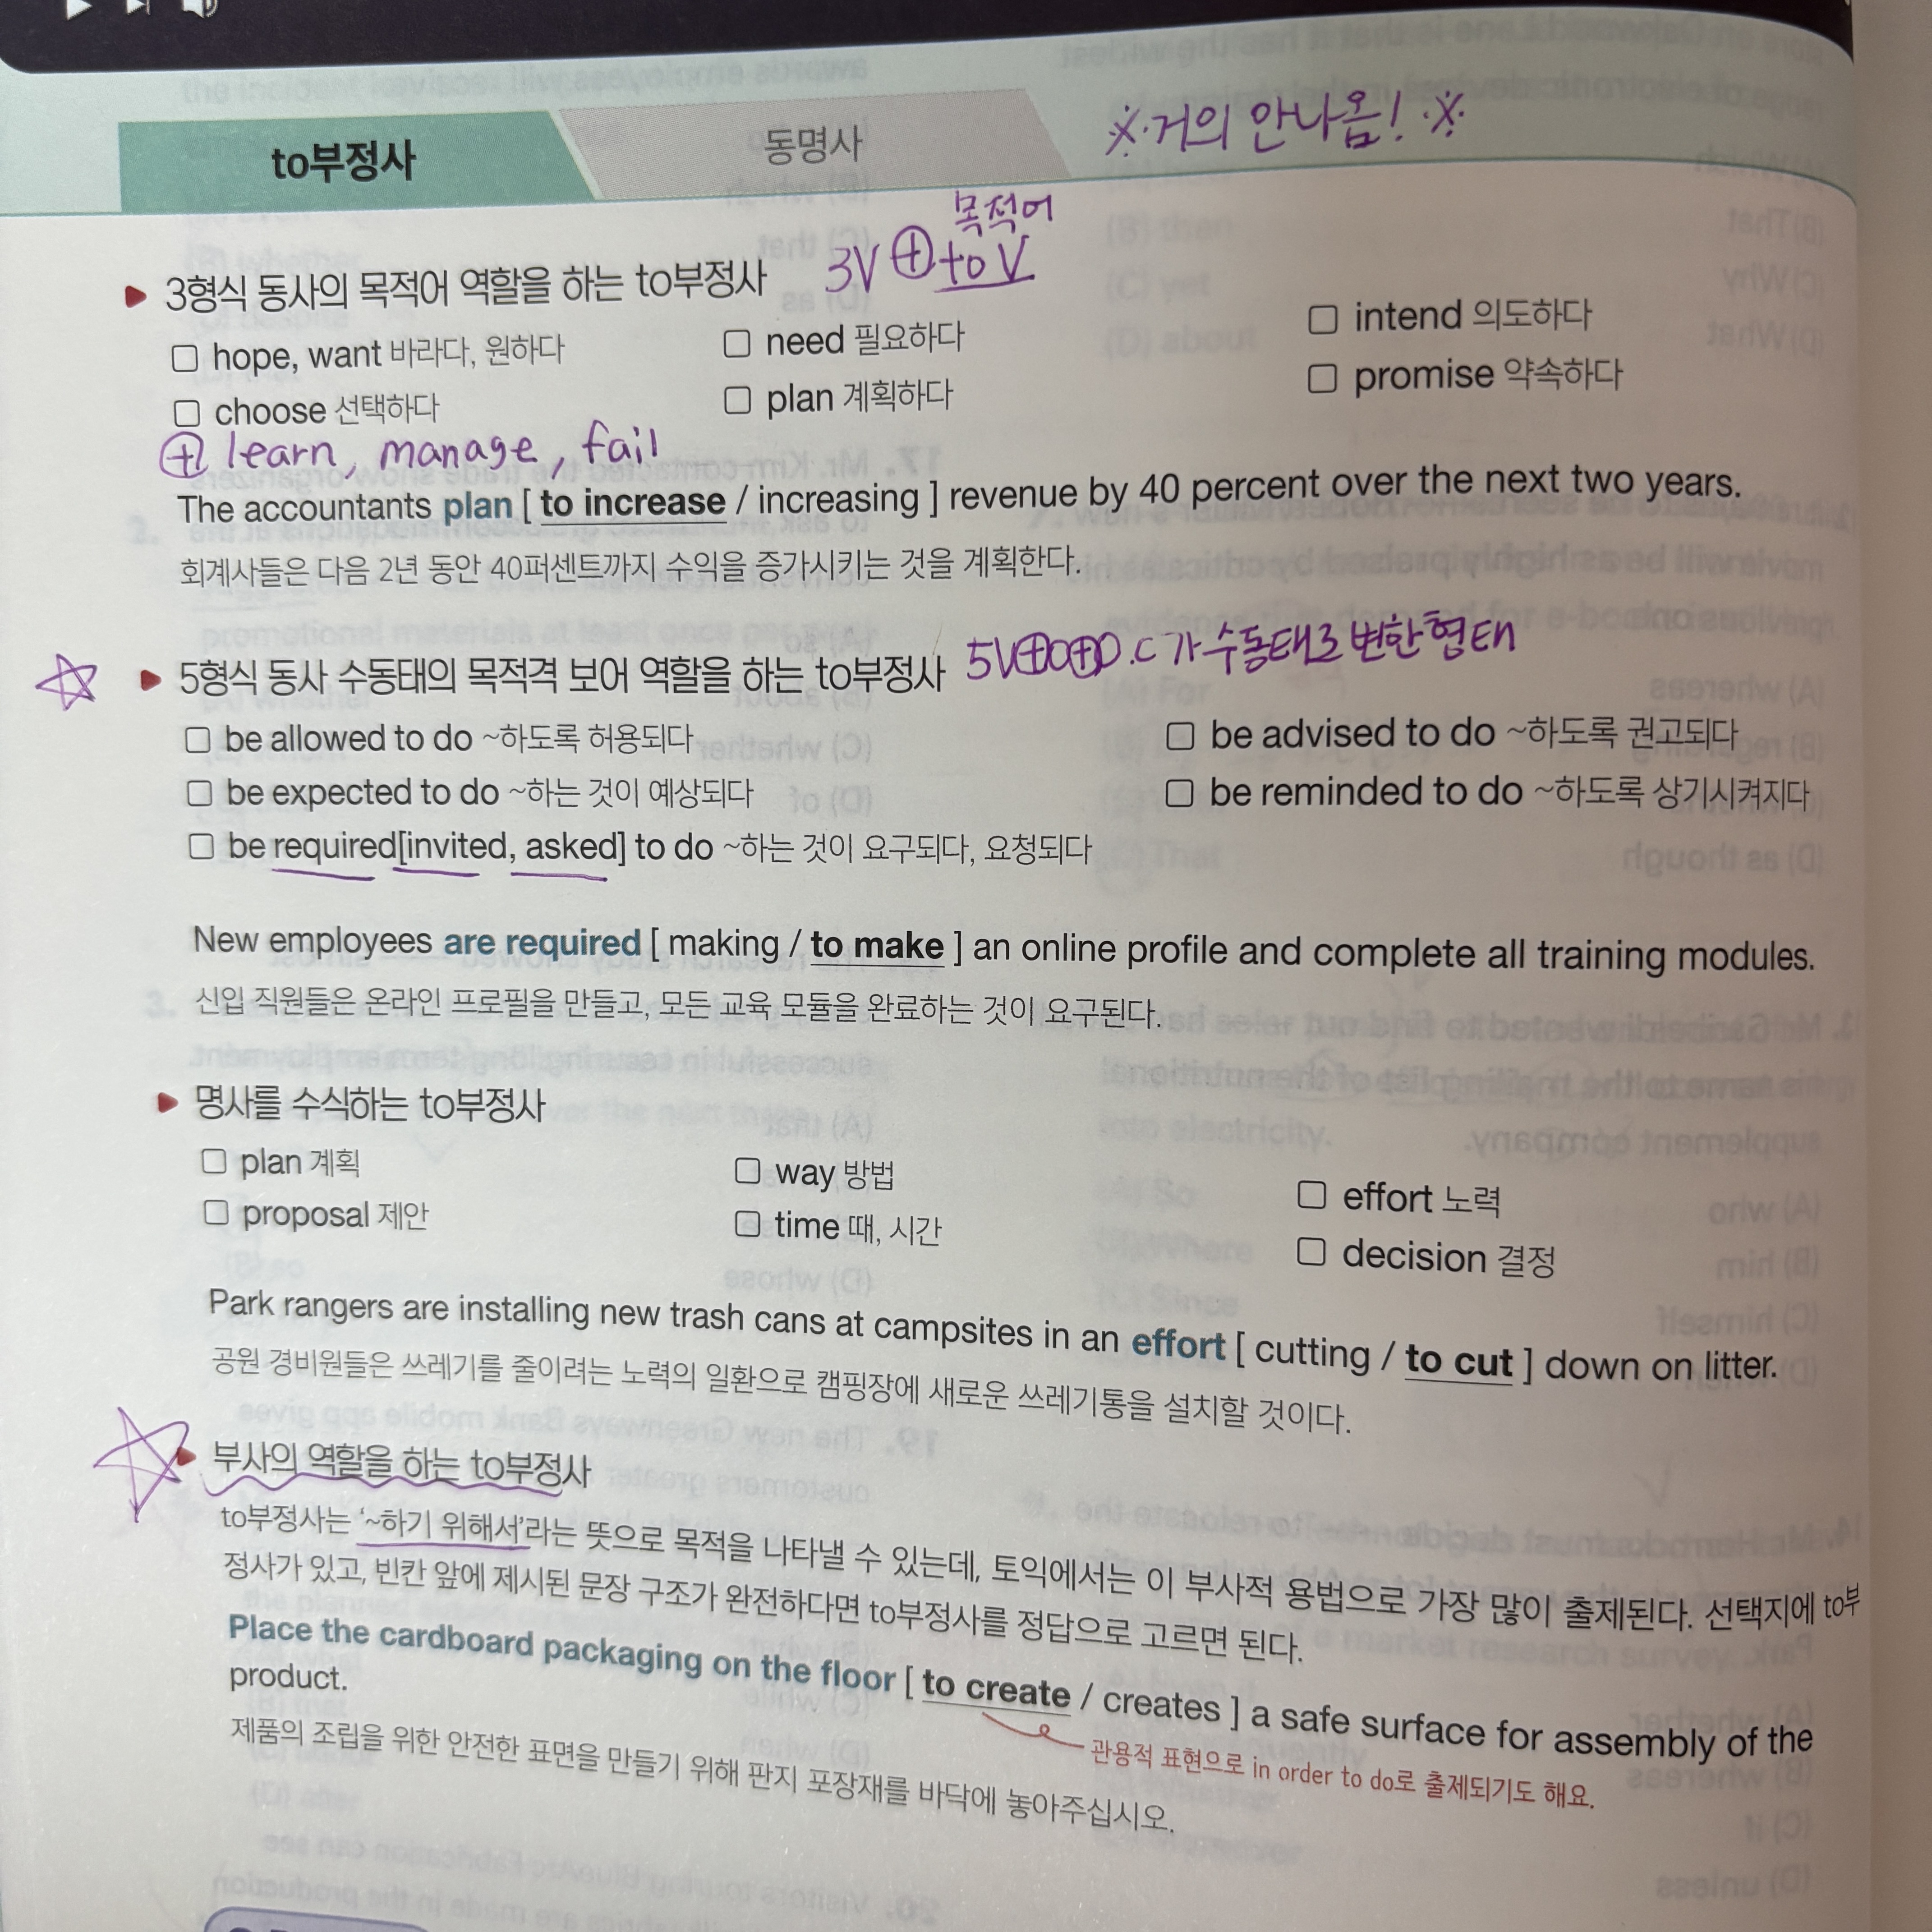 to부정사
동명사
※거의 안나옴! ※
목적어
3V ⊕ to V
▶ 3형식 동사의 목적어 역할을 하는 to부정사
□ hope, want 바라다, 원하다 □ need 필요하다 □ intend 의도하다
□ choose 선택하다 □ plan 계획하다 □ promise 약속하다
⊕ learn, manage, fail
The accountants plan [ to increase / increasing ] revenue by 40 percent over the next two years.
회계사들은 다음 2년 동안 40퍼센트까지 수익을 증가시키는 것을 계획한다.
☆ ▶ 5형식 동사 수동태의 목적격 보어 역할을 하는 to부정사 5V⊕O⊕O.C 가 수동태로 변한 형태
□ be allowed to do ~하도록 허용되다 □ be advised to do ~하도록 권고되다
□ be expected to do ~하는 것이 예상되다 □ be reminded to do ~하도록 상기시켜지다
□ be required[invited, asked] to do ~하는 것이 요구되다, 요청되다
New employees are required [ making / to make ] an online profile and complete all training modules.
신입 직원들은 온라인 프로필을 만들고, 모든 교육 모듈을 완료하는 것이 요구된다.
▶ 명사를 수식하는 to부정사
□ plan 계획 □ way 방법 □ effort 노력
□ proposal 제안 □ time 때, 시간 □ decision 결정
Park rangers are installing new trash cans at campsites in an effort [ cutting / to cut ] down on litter.
공원 경비원들은 쓰레기를 줄이려는 노력의 일환으로 캠핑장에 새로운 쓰레기통을 설치할 것이다.
☆ ▶ 부사의 역할을 하는 to부정사
to부정사는 '~하기 위해서'라는 뜻으로 목적을 나타낼 수 있는데, 토익에서는 이 부사적 용법으로 가장 많이 출제된다. 선택지에 to부
정사가 있고, 빈칸 앞에 제시된 문장 구조가 완전하다면 to부정사를 정답으로 고르면 된다.
Place the cardboard packaging on the floor [ to create / creates ] a safe surface for assembly of the
product.
관용적 표현으로 in order to do로 출제되기도 해요.
제품의 조립을 위한 안전한 표면을 만들기 위해 판지 포장재를 바닥에 놓아주십시오.